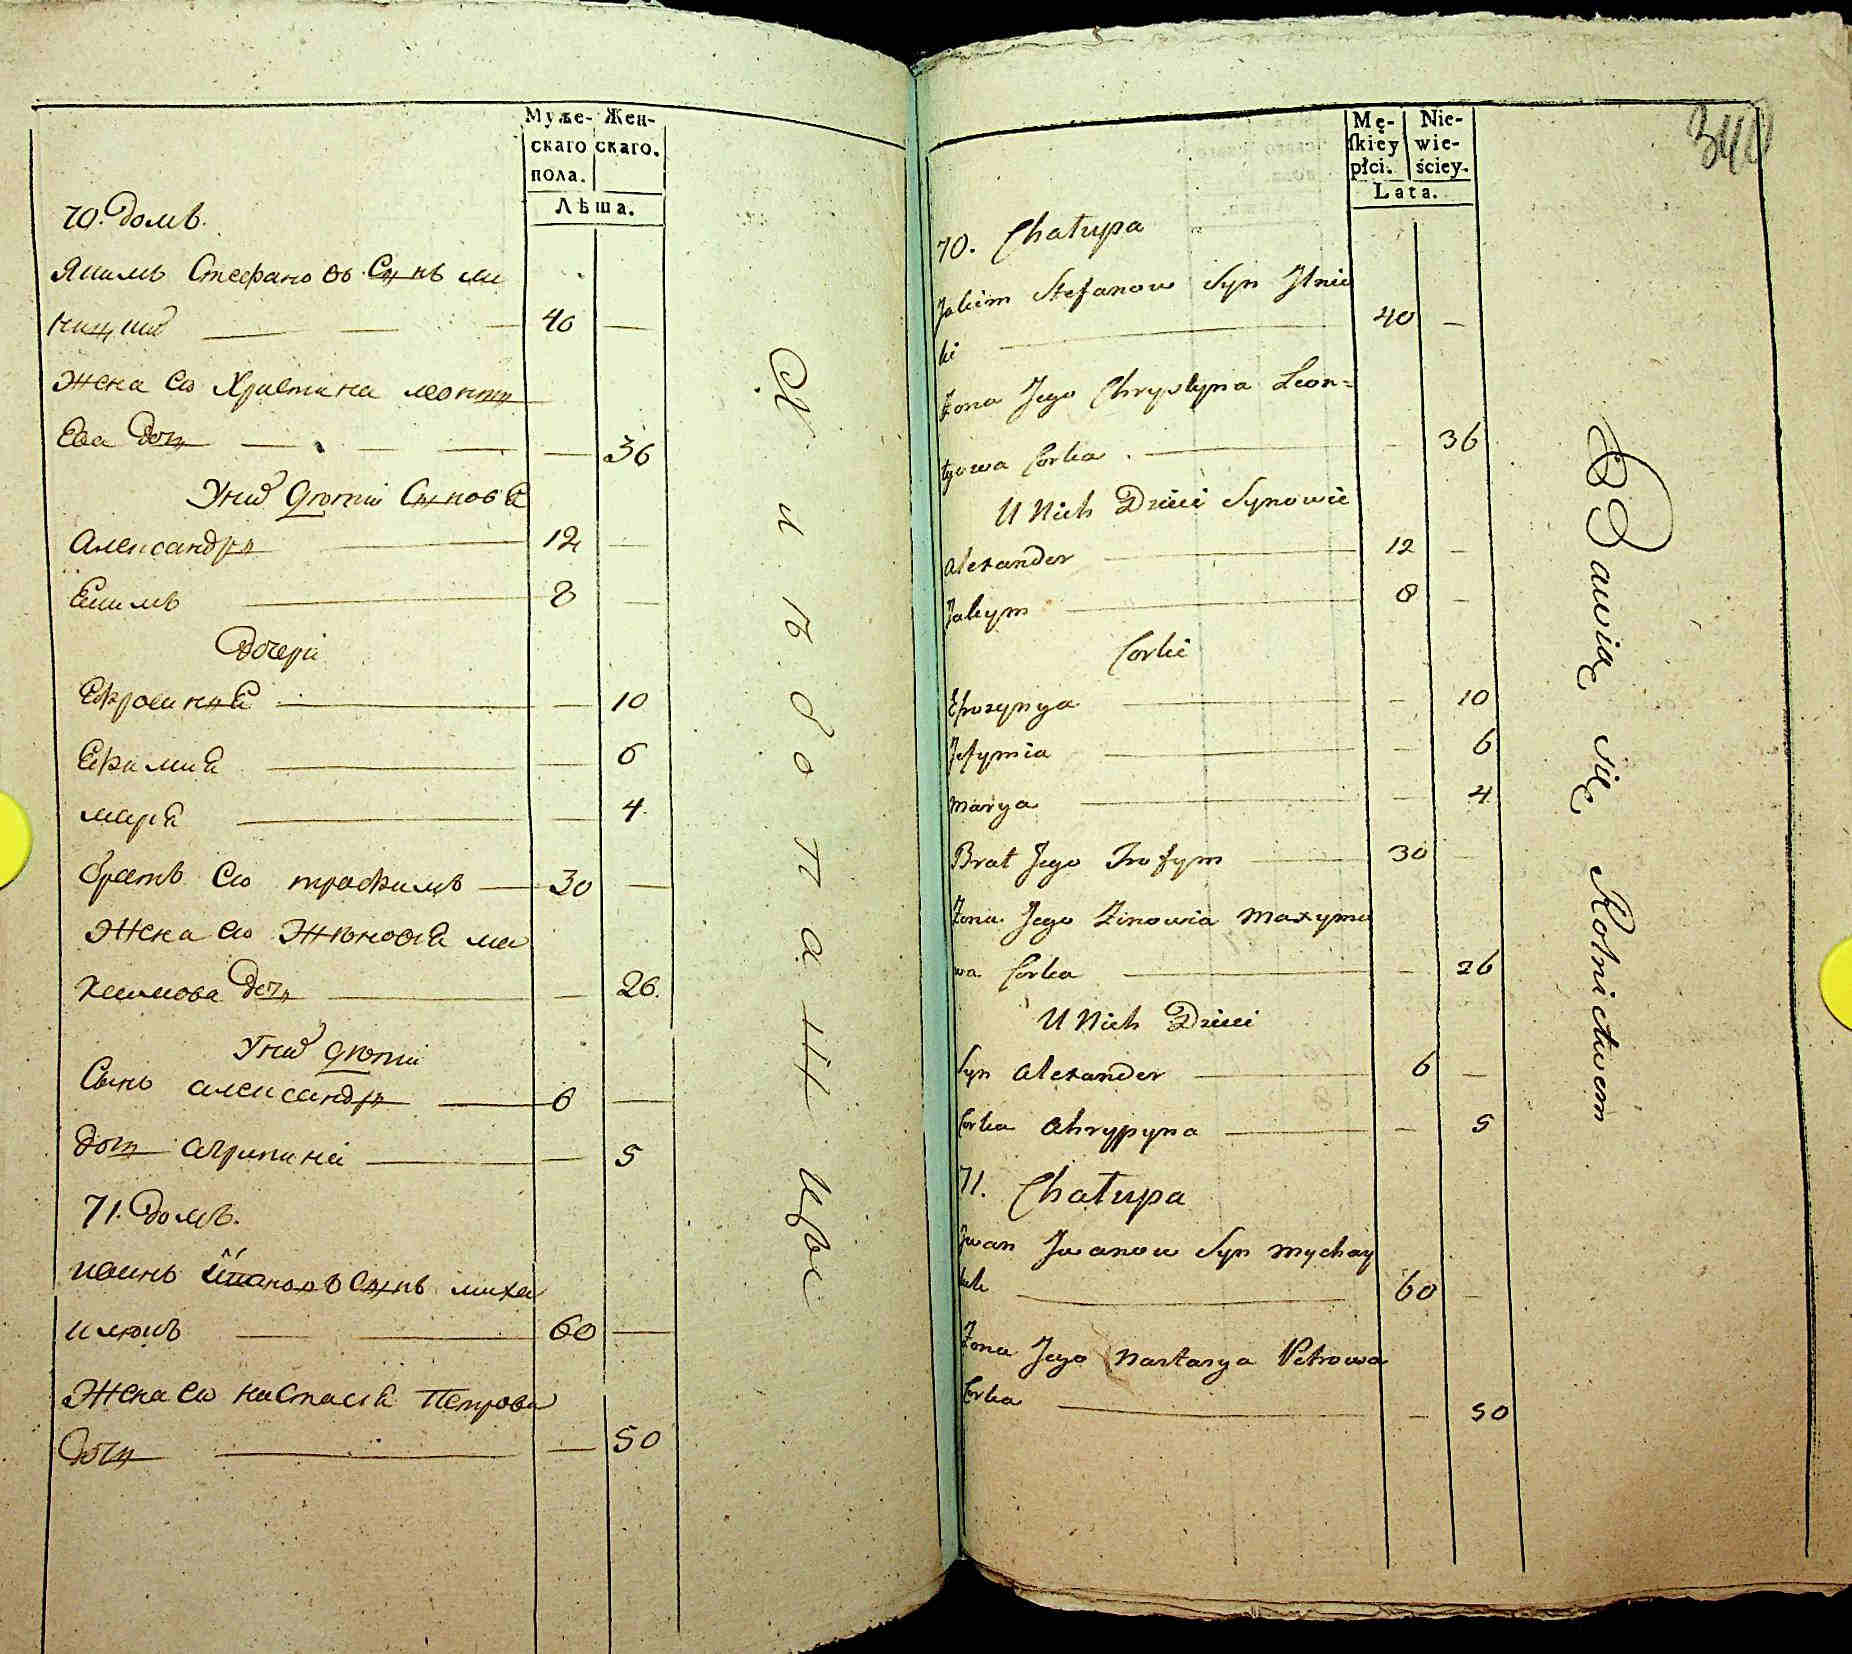 Муже-
скаго
пола.
Жен-
скаго.
Лѣта.
70. Домъ.
Якимъ Стефановъ Сынъ
40 —
Жена Ею Христина Леонты
Ева Дочь — — 36
Униѣ Дѣти Сыновѣ
Александръ — 12 —
Екимъ — 8 —
Дочери
Ефросинія — — 10
Ефимиѣ — — 6
Мариѣ — — 4
братъ Ею трофимъ — 30 —
Жена Ею Жѣновиѣ Ма
ксимова Дочь — — 26.
Униѣ Дѣти
Сынъ Александръ — 6 —
Дочь Агрипина — — 5
71. Домъ.
Иванъ Ивановъ Сынъ Миха
илюкъ — 60 —
Жена Ею Настасиѣ Петрова
Дочь — — 50
Хлѣбопашцы
340
Mę-
ſkiey
płci.
Nie-
wie-
ściey.
Lata.
70. Chałupa
Jakim Stefanow Syn Ilnic
ki — 40 —
Żona Jego Chrystyna Leon=
tyowa Corka . — — 36
U Nich Dzieci Synowie
Alexander — 12 —
Jakym — 8 —
Corki
Efrozynya — — 10
Jefymia — — 6
Marya — — 4
Brat Jego Trofym — 30 —
Żona Jego Zinowia Maxymo
wa Corka — — 26
U Nich Dzieci
Syn Alexander — 6 —
Corka Ahrypyna — — 5
71. Chałupa
Jwan Jwanow Syn Mychay
luk — 60 —
Żona Jego Nastasya Petrowa
Corka — — 50
Bawią się Rolnictwem